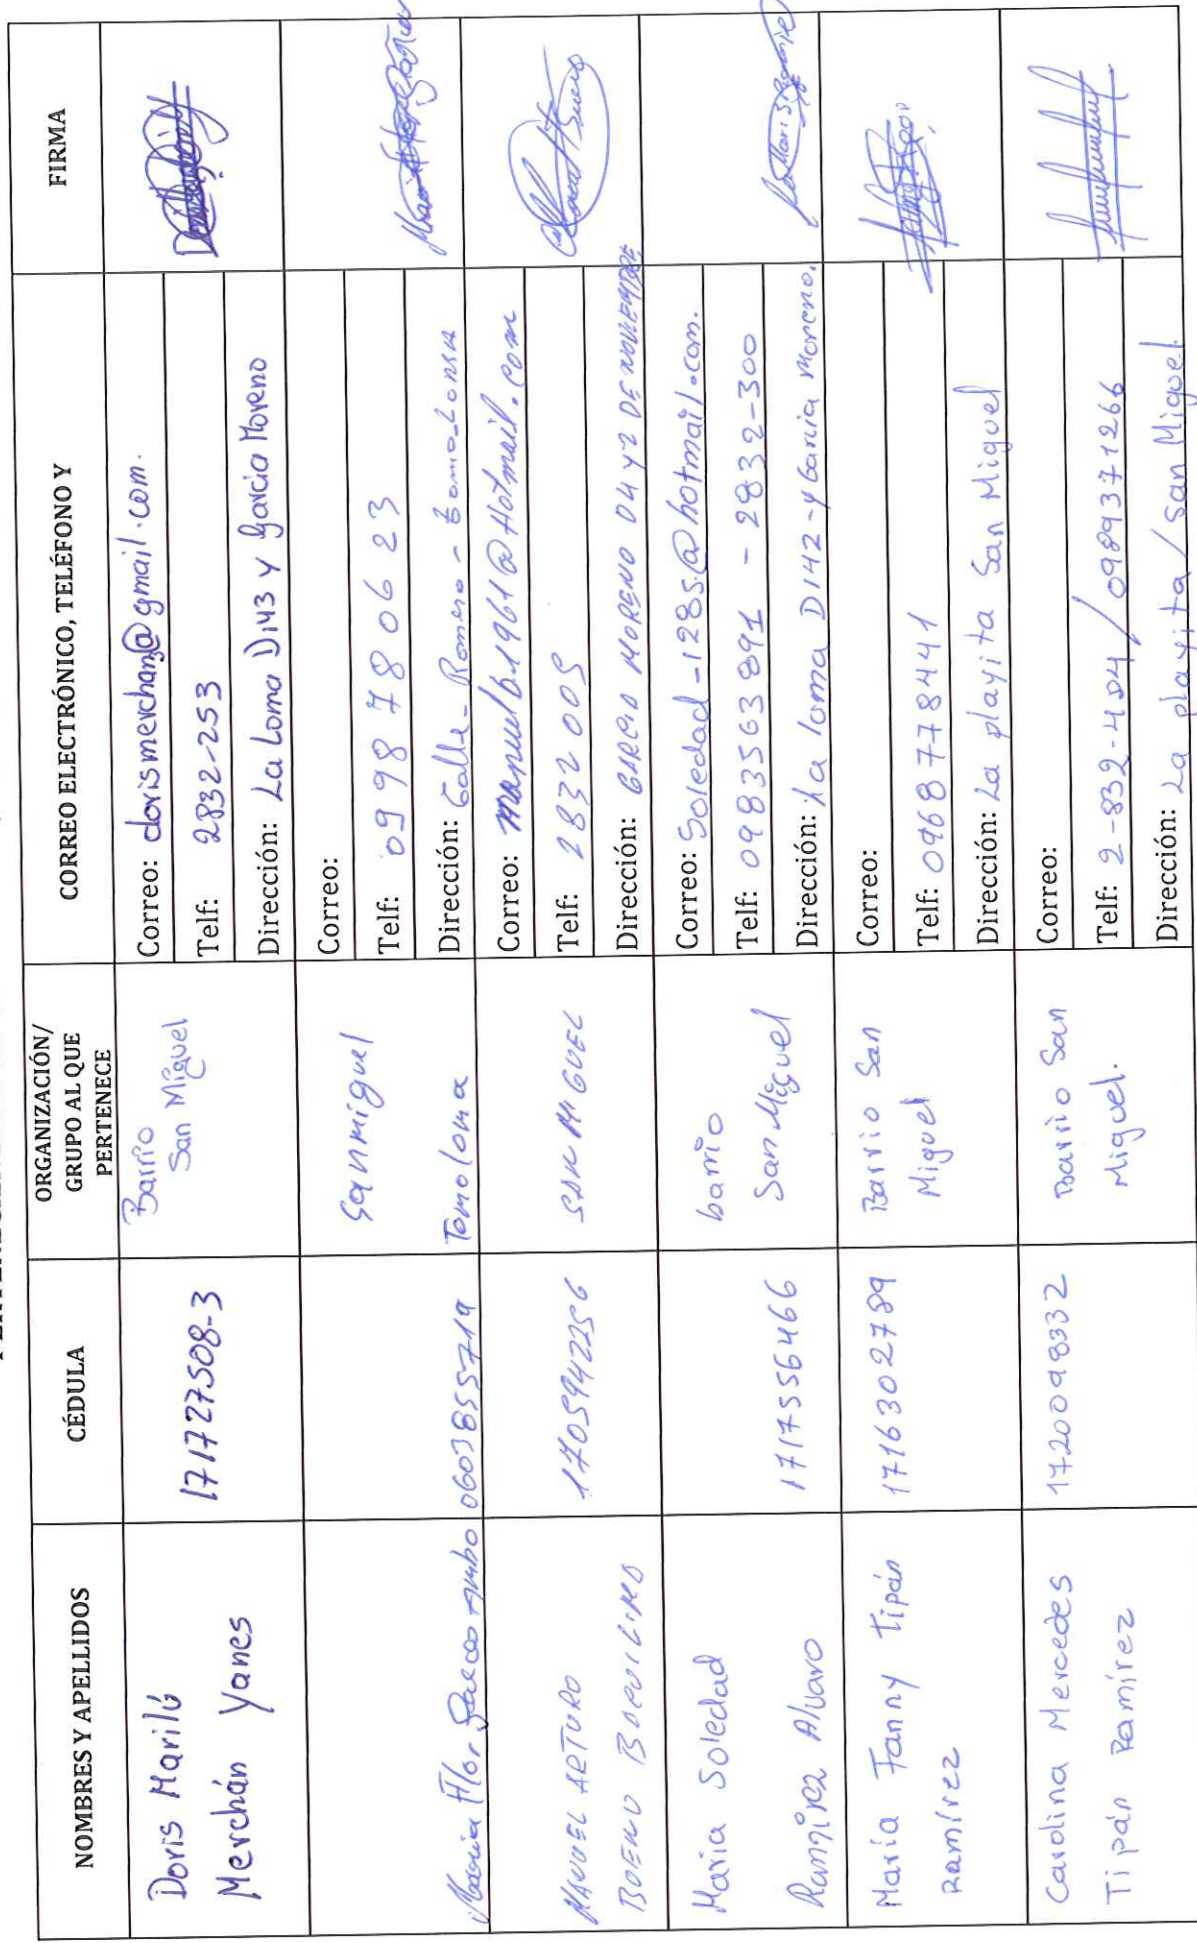 NOMBRES Y APELLIDOS
CÉDULA
ORGANIZACIÓN/
GRUPO AL QUE
PERTENECE
CORREO ELECTRÓNICO, TELÉFONO Y
FIRMA
Doris Marilú
Merchán Yanes
171727508-3
Barrio
San Miguel
Correo: dorismerchan3@gmail.com.
Telf: 2832-253
Dirección: La Loma D143 y García Moreno
Maria Flor
0603855719
Sanmiguel
Tomoloma
Correo:
Telf: 0998780623
Dirección: Calle - Romero -
MANUEL ARTURO
BUENO
1705942256
SAN MIGUEL
Correo: manuelb-1961@Hotmail.com
Telf: 2832005
Dirección: GARCIA MORENO 04 Y 2 DE NOVIEMBRE
Maria Soledad
Ramirez Alvaro
1717556466
barrio
San Miguel
Correo: Soledad-1285@hotmail.com.
Telf: 0983563891 - 2832-300
Dirección: La loma D142-y Garcia Moreno.
María Fanny Tipán
Ramírez
1716302789
Barrio San
Miguel
Correo:
Telf: 0968778441
Dirección: La playita San Miguel
Carolina Mercedes
Tipán Ramírez
1720098332
Barrio San
Miguel.
Correo:
Telf: 2-832-404 / 0989371266
Dirección: La playita / San Miguel.